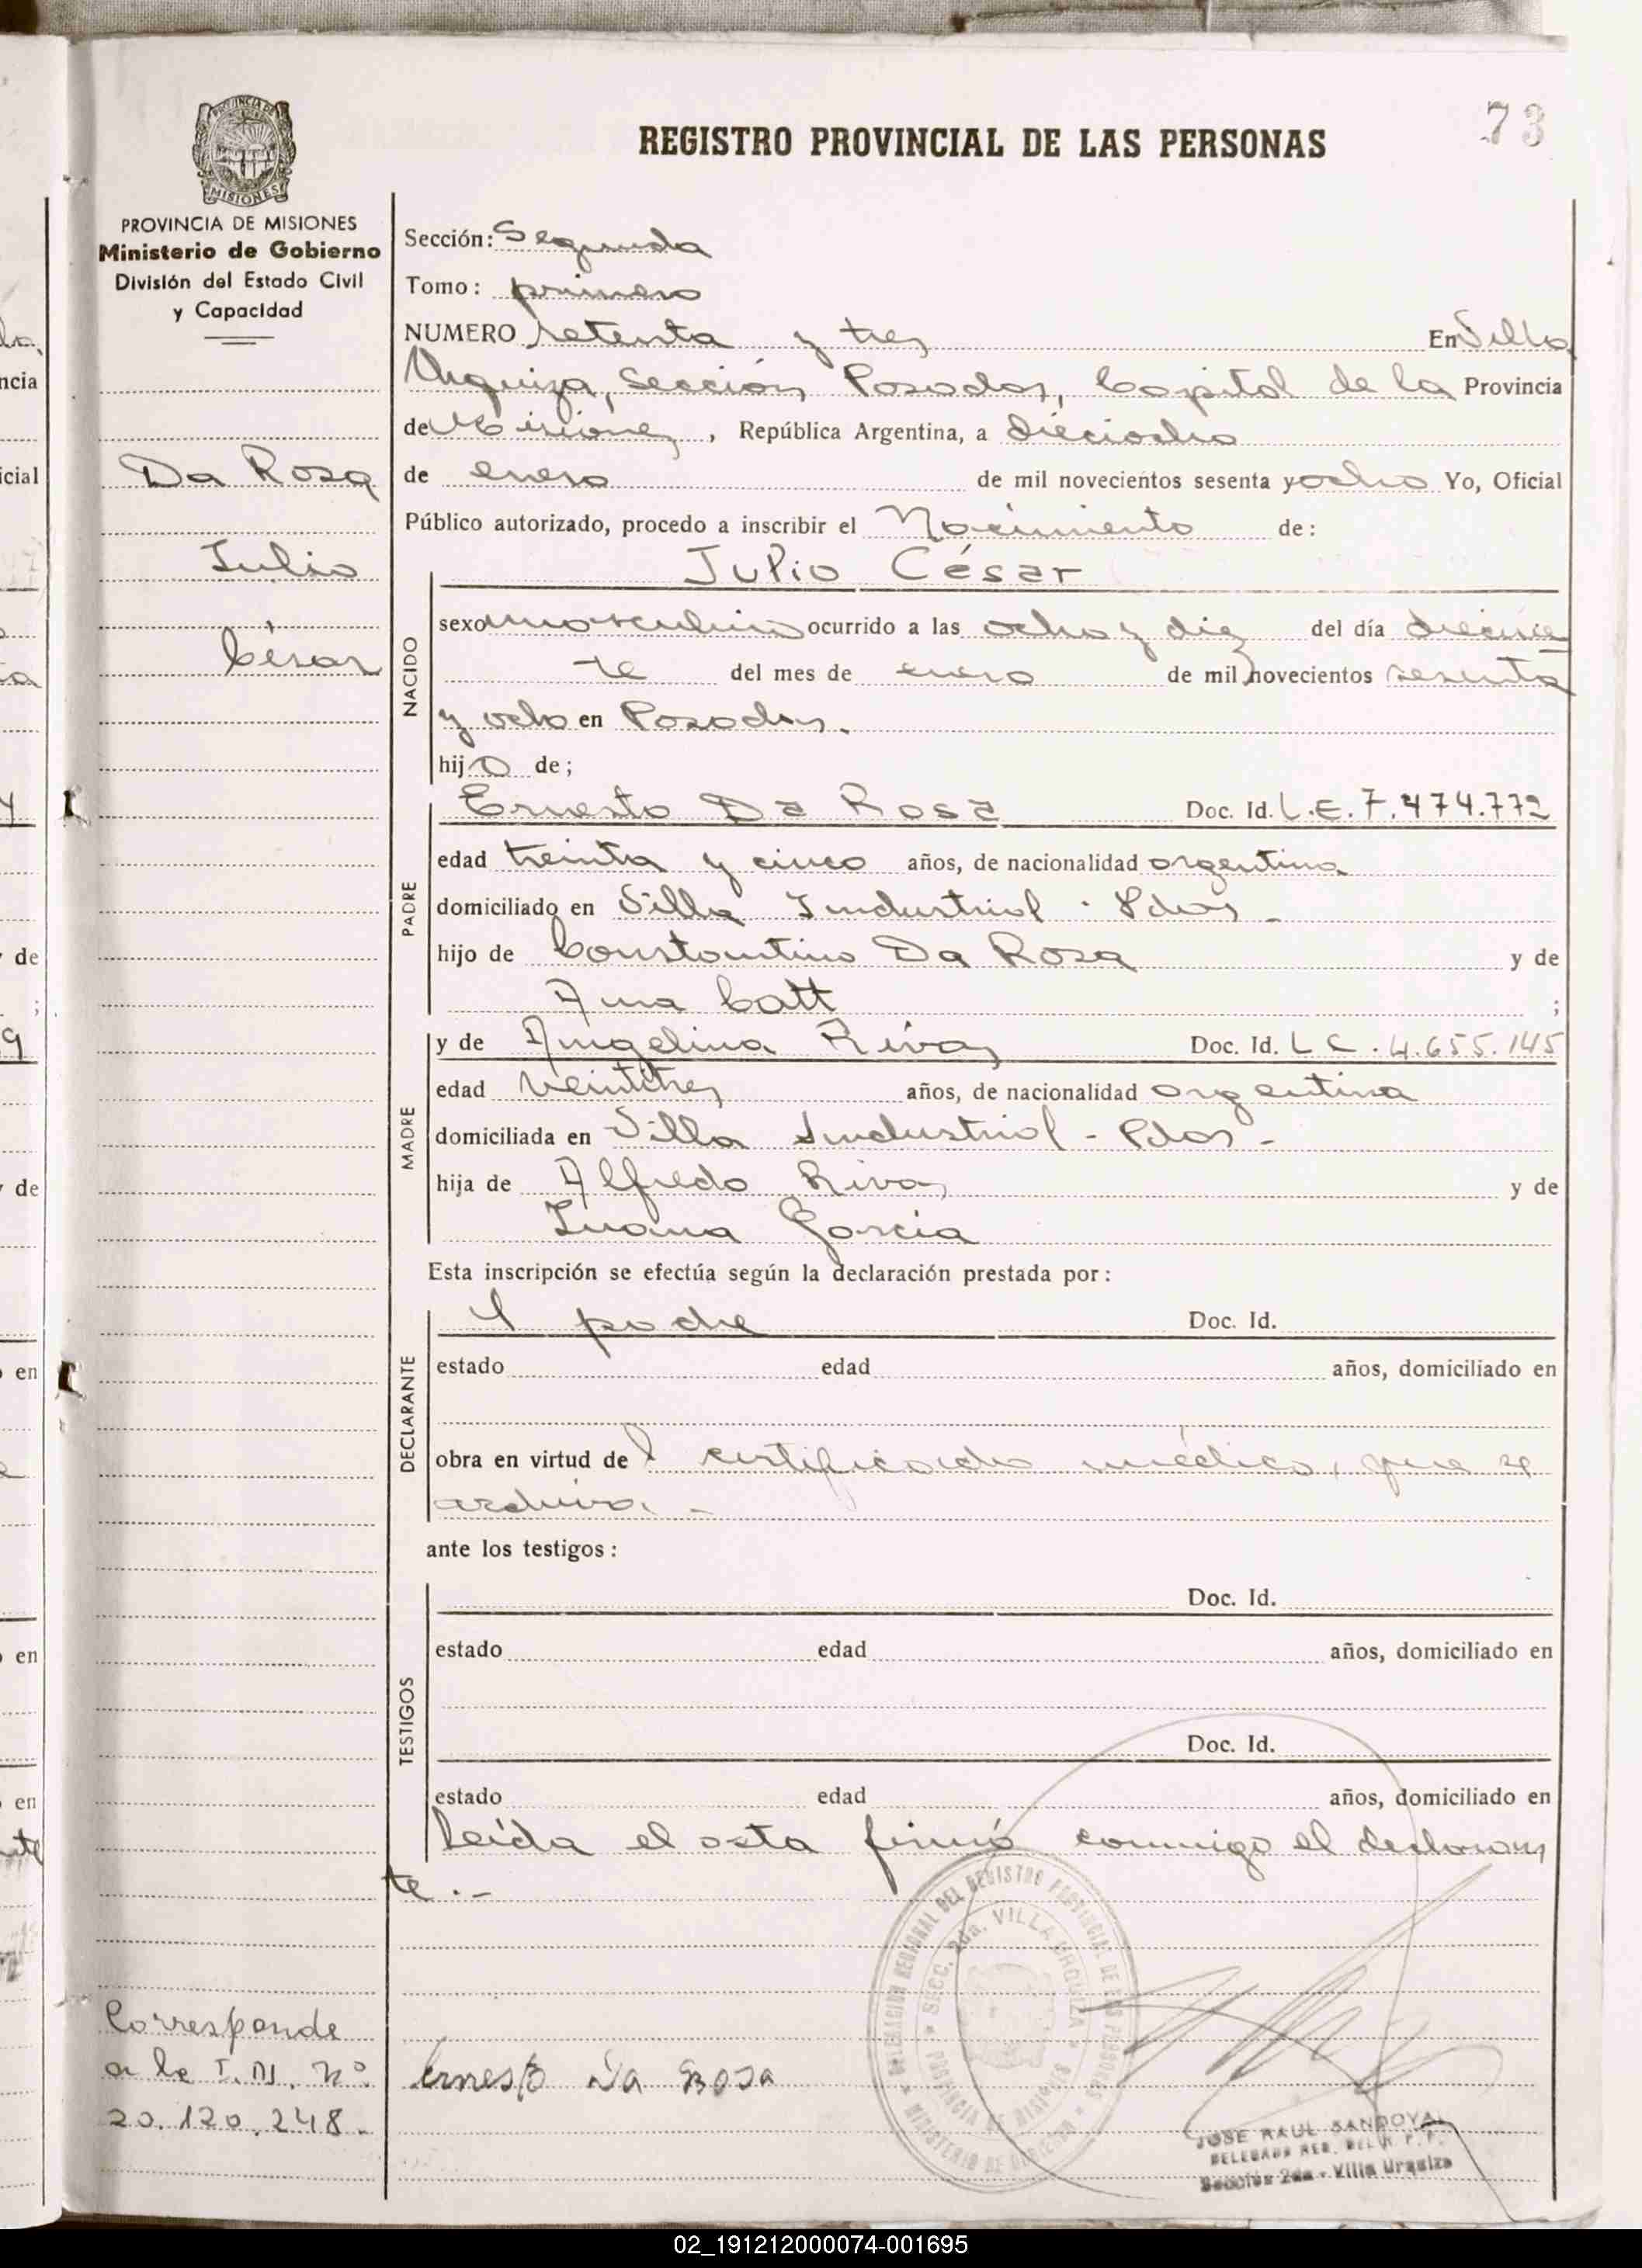 73
REGISTRO PROVINCIAL DE LAS PERSONAS
PROVINCIA DE MISIONES
Ministerio de Gobierno
División del Estado Civil
y Capacidad
Da Rosa
Julio
César
Corresponde
a la I. M. Nº
20.120.248.-
Sección: Segunda
Tomo: primero
NUMERO setenta y tres En Villa
Urquiza, Sección Posadas, Capital de la Provincia
de Misiones, República Argentina, a dieciocho
de enero de mil novecientos sesenta y ocho Yo, Oficial
Público autorizado, procedo a inscribir el Nacimiento de:
Julio César
NACIDO
sexo masculino ocurrido a las ocho y diez del día diecisie
te del mes de enero de mil novecientos sesenta
y ocho en Posadas.
hijo de;
PADRE
Ernesto Da Rosa Doc. Id. L.E. 7.474.772
edad treinta y cinco años, de nacionalidad argentina
domiciliado en Villa Industrial - Pdas -
hijo de Constantino Da Rosa y de
Ana Catt ;
MADRE
y de Angelina Rivas Doc. Id. L C. 4.655.145
edad veintitres años, de nacionalidad argentina
domiciliada en Villa Industrial - Pdas -
hija de Alfredo Rivas y de
Juana Garcia
Esta inscripción se efectúa según la declaración prestada por:
DECLARANTE
l padre Doc. Id.
estado edad años, domiciliado en
obra en virtud del certificado médico, que se
archiva. -
ante los testigos:
TESTIGOS
Doc. Id.
estado edad años, domiciliado en
Doc. Id.
estado edad años, domiciliado en
Leída el acta firmó conmigo el declaran
te .-
Ernesto Da Rosa
DELEGACION REGIONAL DEL REGISTRO PROVINCIAL DE LAS PERSONAS
SECC. 2da. VILLA URQUIZA
PROVINCIA DE MISIONES
MINISTERIO DE GOBIERNO
JOSE RAUL SANDOVAL
DELEGADO REG. DEL R. P. P.
Sección 2da - Villa Urquiza
02_191212000074-001695